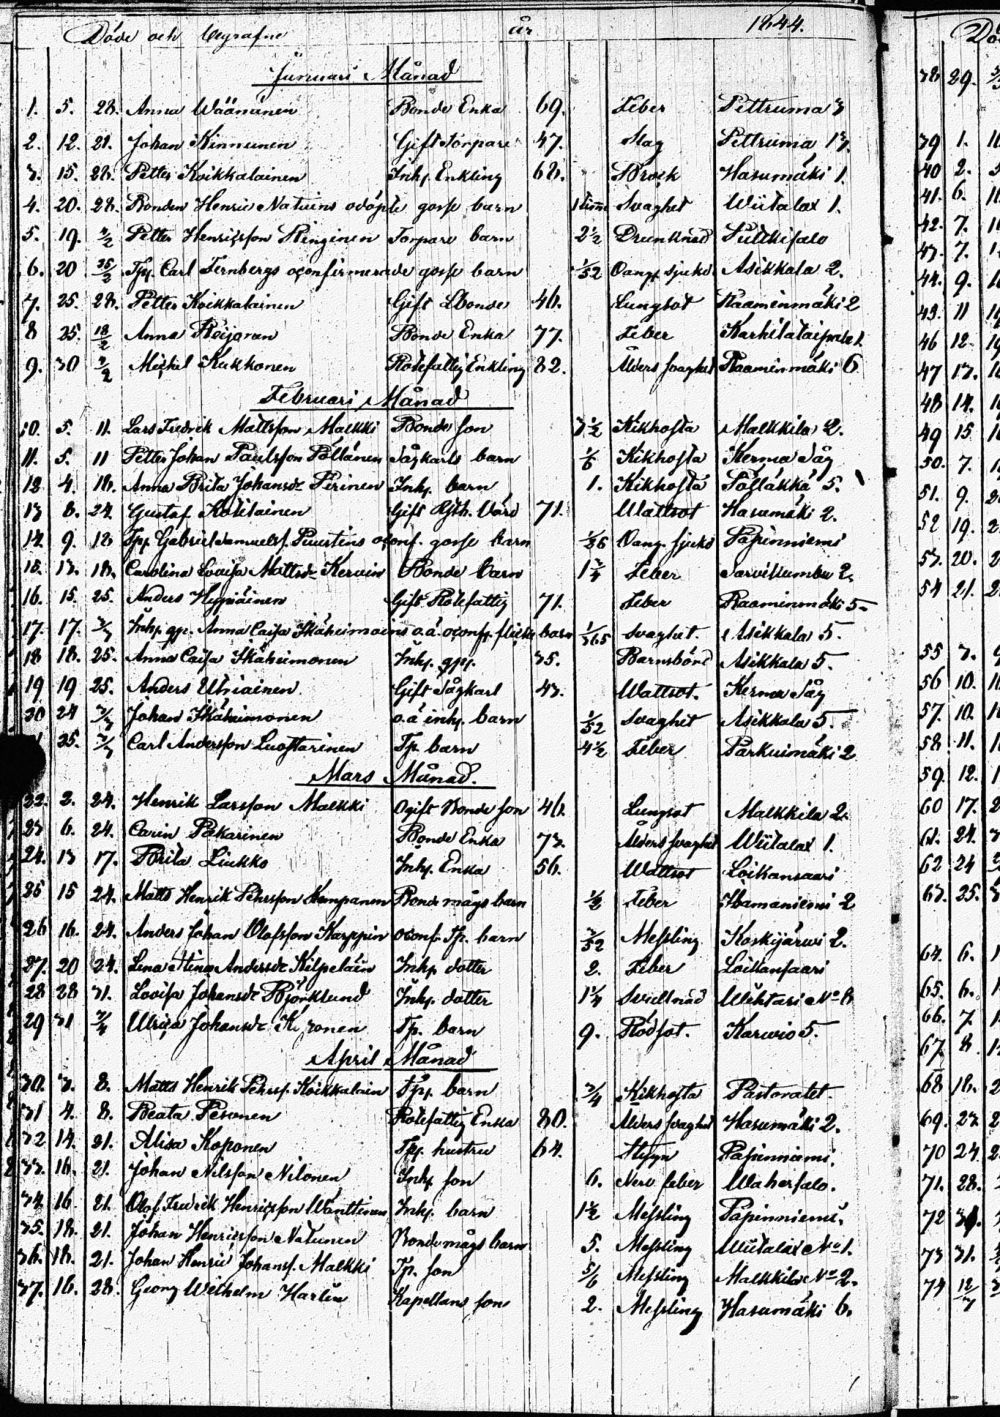 Döde och begrafne år 1844.
Januari Månad
1. 5. 28. Anna Wäänänen Bonde Enka 69. Feber Pettruma 3
2. 12. 21. Johan Kinnunen Gift Torpare 47. Slag Pettruma 13.
3. 15. 28. Petter Koikkalainen Inhy. Enkling 68. Brock Hasumäki 1.
4. 20. 28. Bonden Henric Natuins odöpte gosse barn Svaghet Wiitalax 1.
5. 19. 4/2 Petter Henricsson Ringinen Torpare barn 2 1/2 Drunknad
6. 20 25/2 Tpr. Carl Ternbergs oconfirmerade gosse barn 1/52 Oang. sjukd. Asikkala 2.
7. 25. 28. Petter Koikkalainen Gift Bonde 46. Lungsot Raaminmäki 2
8 25. 18/2 Anna Roigaran Bonde Enka 77. Feber
9. 30 4/2 Michel Kukkonen Rotefattig Enkling 82. Ålders svaghet Raaminmäki 6
Februari Månad
10. 5. 11. Lars Fredrik Mattsson Malkki Bonde son 3 1/2 Kikhosta Malkkila 2.
11. 5. 11 Petter Johan Paulsson Pöllänen Sågkarls barn 1/6 Kikhosta Kerma Såg
12 4. 18. Anna Brita Johansdr Perinen Inhy. barn 1. Kikhosta 5.
13 8. 24. Gustaf Kotilainen Gift 71. Wattsot Hasumäki 2.
14. 9. 18 Tpr. Gabriel Samuelss. Puustins oconf. gosse barn Oang. sjukd Papinniemi
15. 13. 18. Carolina Lovisa Mattsdr Kervin Bonde barn 1 3/4 Feber Sarvikumbu 2.
16. 15. 25. Anders Hypiäinen Gift Rotefattig 71. Feber Raaminmäki 5
17. 17. 3/3 Inhy. qp. Anna Caisa Ikäheimoins o.ä. oconf. flicke barn 1/365 Svaghet. Asikkala 5.
18 18. 25. Anna Caisa Ikäheimonen Inhy. qp. 35. Barnsbörd Asikkala 5.
19 19 25. Anders Utriainen Gift Sågkarl 43. Wattsot. Kerma Såg
20 24 3/3 Johan Ikäheimonen o.ä. inhy. barn 1/52 Svaghet Asikkala 5.
25. 3/3 Carl Andersson Luostarinen Tp. barn 4 1/2 Feber Parkuimäki 2
Mars Månad.
22. 2. 24. Henrik Larsson Malkki Ogift Bonde son 46. Lungsot Malkkila 2.
23 6. 24. Carin Pakarinen Bonde Enka 73. Ålders svaghet Wiitalax 1.
24. 13 17. Brita Liukko Inhy. Enka 56. Wattsot Loikansaari
25 15 24. Matts Henrik Pehrsson Kumpanen Bonde mågs barn 1/2 Feber Hamaniemi 2
26 16. 24. Anders Johan Olofsson Karppin oconf. Tp. barn 3/52 Messling Koskijärwi 2.
27. 20 24. Lena Stina Andersdr Kilpeläin Inhy. dotter 2. Feber Loikansaari
28 28 31. Lovisa Johansdr Björklund Inhy. dotter 1 1/4 No 8
29 31 3/4 Ulrica Johansdr Tp. barn 9. Rödsot. Karwio 5.
April Månad
30. 3. 8. Matts Henrik Pehrss. Koikkalain Tpr. barn 3/4 Kikhosta Pastoratet.
31 4. 8. Beata Pesonen Rotefattig Enka 80. Ålders svaghet Hasumäki 2.
32 14. 21. Alisa Koponen Tpr. hustru 64. Stygn Papinniemi.
33. 16. 21. Johan Nilsson Nilonen Inhy. son 6. Nerv feber Wahersalo.
34. 16 21. Olof Fredrik Henricsson Wänttinen Inhy. barn 1 1/2 Messling Papinniemi.
35. 18. 21. Johan Henricsson Natuinen Bonde mågs barn 5. Messling Wiitalax No 1.
36. 18. 21. Johan Henric Johanss. Malkki Tp. son 5/6 Messling Malkkila No 2.
37. 16. 28. Georg Wilhelm Harlin Kapellans son 2. Messling Hasumäki 6.
38 29.
39 1.
40 2.
41. 6.
42. 7.
43. 7.
44. 9.
45. 11
46 12.
47 13.
48 14.
49 15.
50. 7.
51. 9.
52 19.
53. 20.
54 21.
55 3.
56 10.
57. 10.
58 11.
59. 12.
60 17.
61. 24.
62 24
63. 25.
64. 6.
65. 6.
66. 7.
67. 8.
68 18.
69. 23
70 24.
71. 28.
72 31.
73 31.
74 12/3